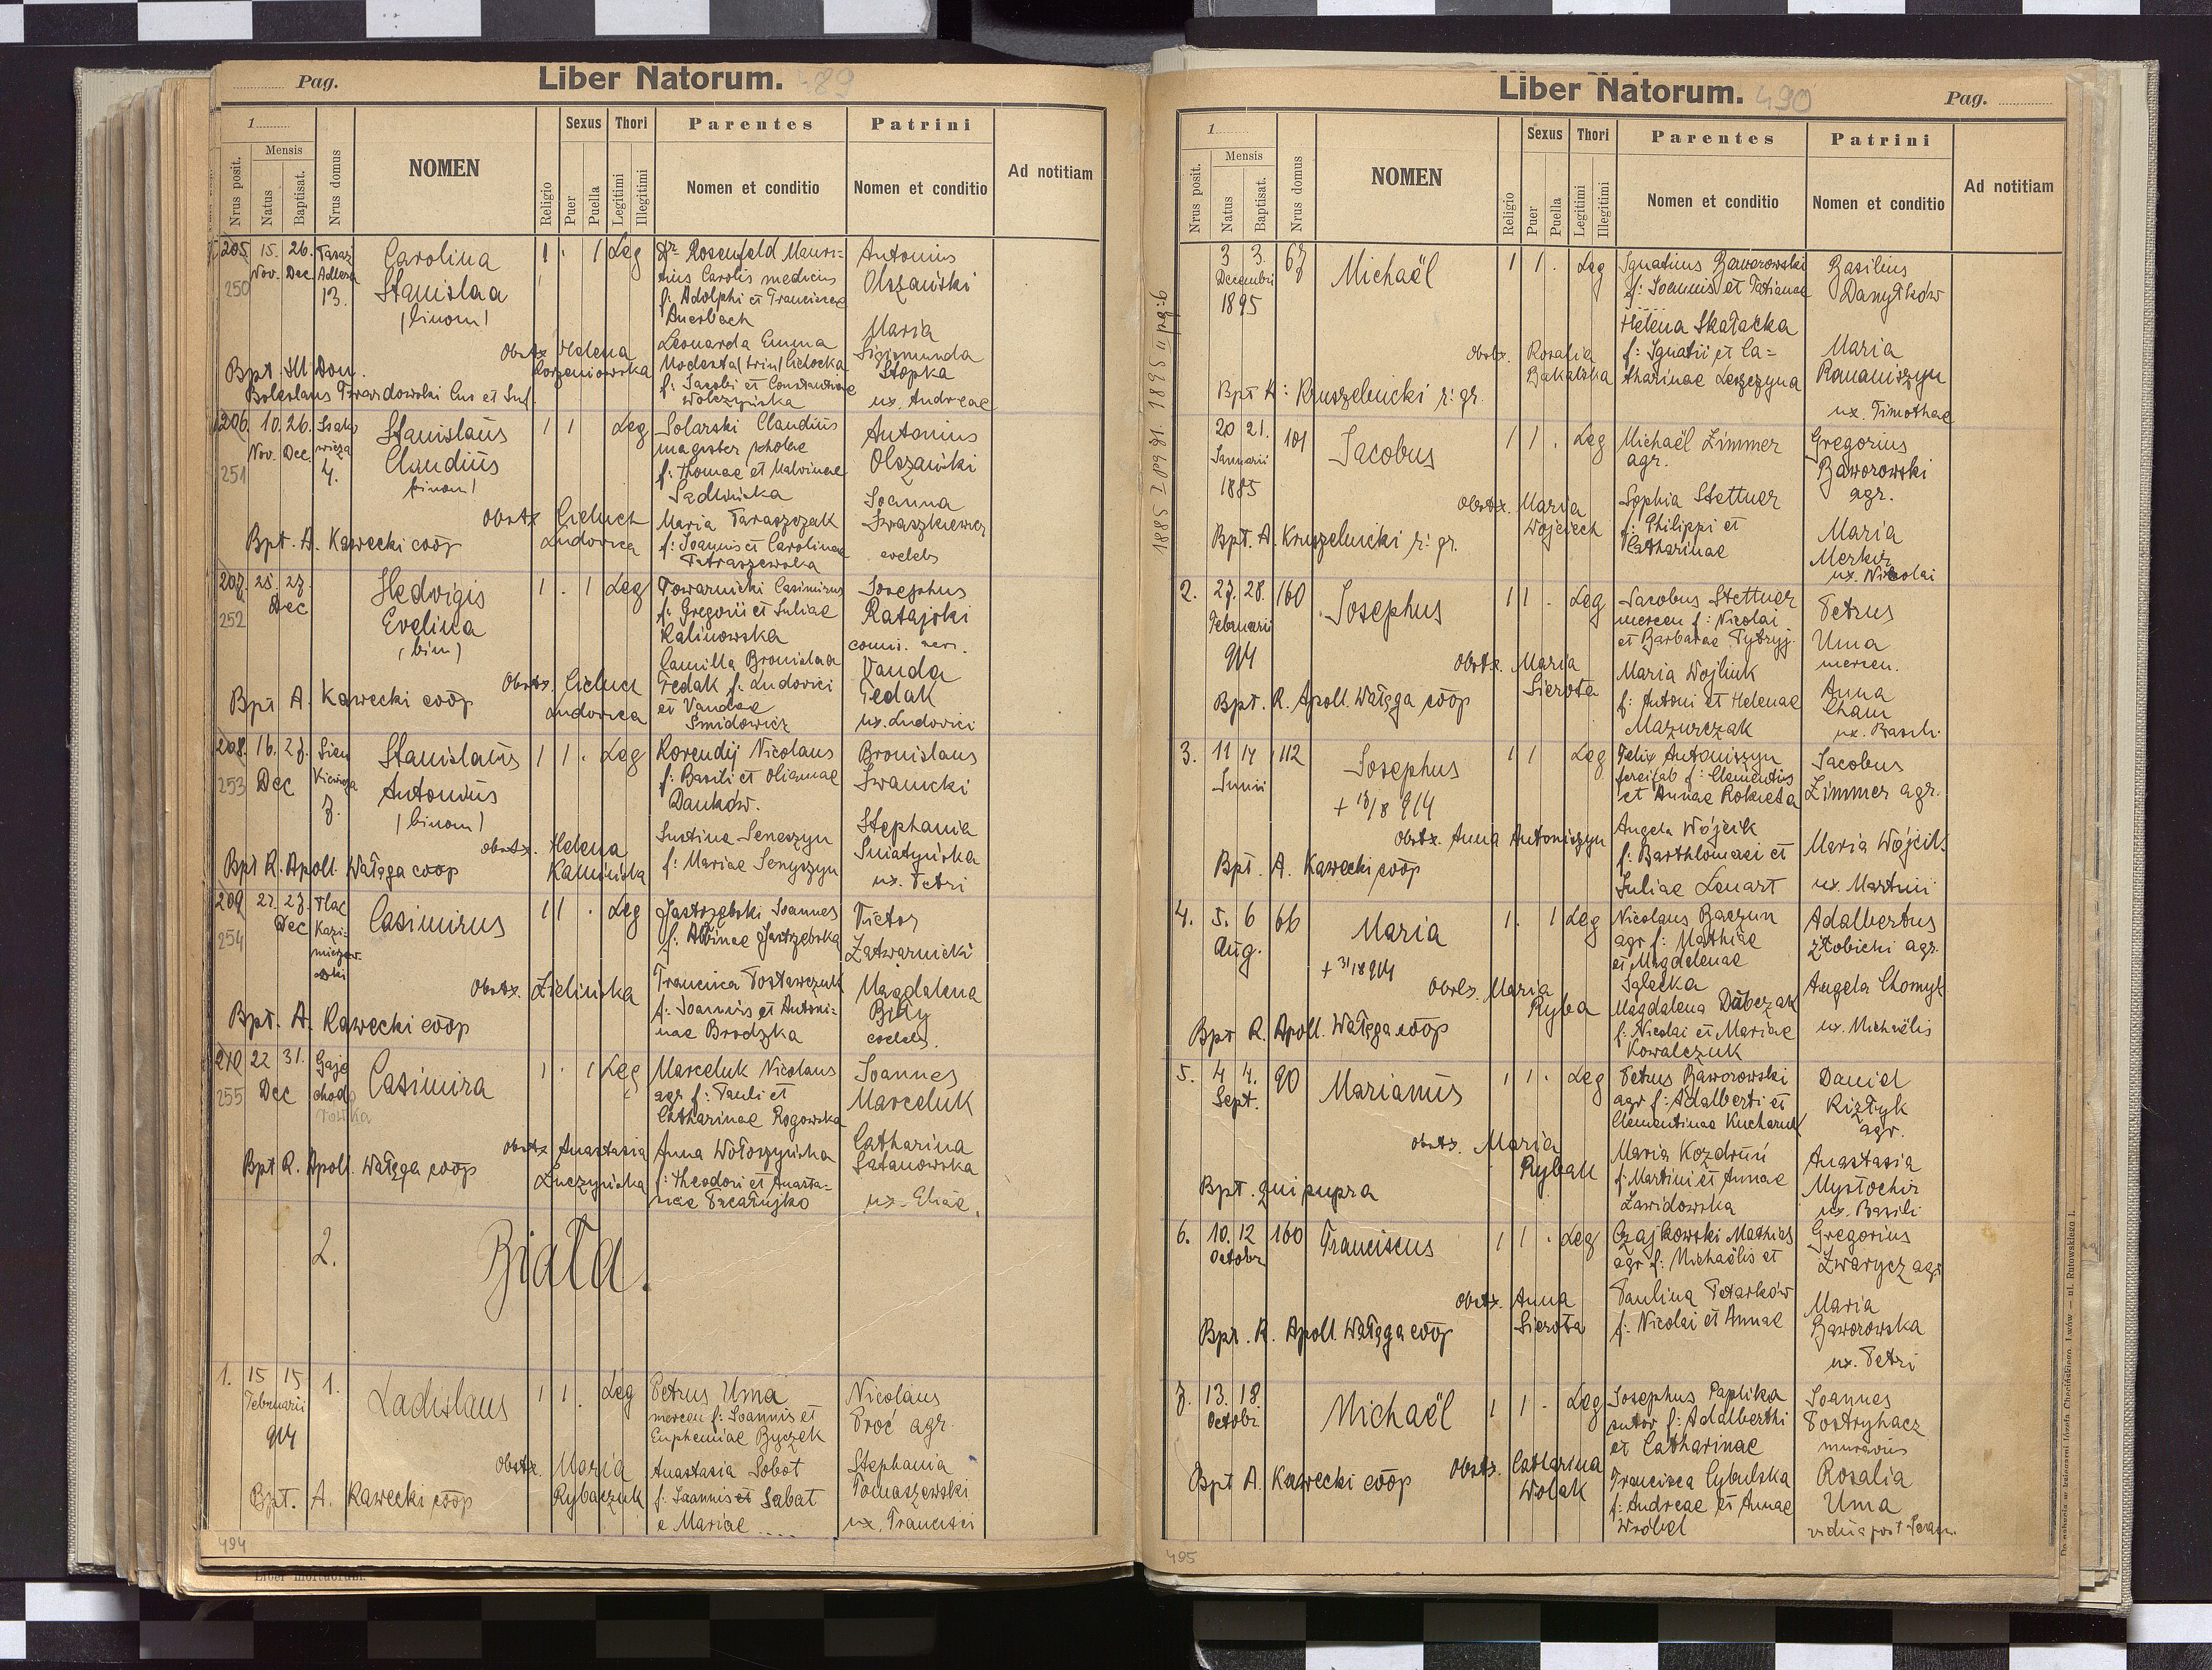 Pag.
Liber Natorum. 489
1
Mensis
Nrus posit.
Natus
Baptisat.
Nrus domus
NOMEN
Religio
Sexus
Puer
Puella
Thori
Legitimi
Illegitimi
Parentes
Nomen et conditio
Patrini
Nomen et conditio
Ad notitiam
205. 15. 26.
Nov. Dec.
250
13.
Carolina
Stanislaa
(binom)
1 . 1 Leg
Dr Rosenfeld Mauri-
tius Carolis medicus
f: Adolphi et Franciscae
Auerbach
Leonarda Emma
Modesta (trin) Cichocka
f: Jacobi et Constantiae
Wolczyńska
Antonius
Olszański
Maria
Sigismunda
Stopka
ux. Andreae
Obstx Helena
Korzeniowska
Bpt. Ill Dom.
Boleslaus Twardowski
206. 10. 26.
Nov. Dec.
251
4.
Stanislaus
Claudius
binom)
1 1 Leg
Solarski Claudius
magister scholae
f: Thomae et Malvinae
Maria Taraszczak
f: Joannis et Carolinae
Petraszewska
Antonius
Olszański
Joanna
Iwaszkiewicz
coelebs
Obstx Cieluch
Ludovica
Bpt. A. Kawecki coop
207. 25. 27.
Dec
252
Hedvigis
Evelina
(bin)
1 . 1 Leg
Towarnicki Casimirus
f: Gregorii et Juliae
Kalinowska
Camilla Bronislaa
Fedak f: Ludovici
et Vandae
Smidowicz
Josephus
Ratajski
Vanda
Fedak
ux. Ludovici
Obstx. Cieluch
Ludovica
Bpt A. Kawecki coop
208. 16. 27.
Dec
253
7.
Stanislaus
Antonius
(binom)
1 1 . Leg
Korendij Nicolaus
f: Basili et Olianae
Dańków.
Justina Seneszyn
f: Mariae Senyszyn
Bronislaus
Iwanicki
Stephania
Śniatyńska
ux. Petri
obstx. Helena
Kamińska
Bpt R. Apoll. Wałęga coop
209 27. 27.
Dec
254
Plac
Kazi-
mierzow
ski
Casimirus
1 1 . Leg
Jastrzębski Joannes
f: Albinae Jastrzębska
Francisca Postawczuk
f: Joannis et Antoni-
nae Brodzka
Victor
Zatwarnicki
Magdalena
Biły
coelebs.
Obstx. Zielińska
Bpt. A. Kawecki coop
210 22 31.
Dec
255
Casimira
1 . 1 Leg
Marceluk Nicolaus
agr f: Pauli et
Catharinae Rogowska
Anna Wołoszyńska
f: Theodori et Anasta-
Joannes
Marceluk
Catharina
Satanowska
ux. Eliae.
obstx Anastasia
Łuczyńska
Bpt R. Apoll. Wałęga coop
2. Biała.
1. 15 15
Februarii
914
1.
Ladislaus
1 1. Leg
Petrus Uma
mercen f: Joannis et
Euphemiae Byczek
Anastasia Sobot
f: Joannis et Sabat
e Mariae ....
Nicolaus
Proć agr.
Stephania
Tomaszewski
ux. Francisci
obstx. Maria
Rybaczuk
Bpt. A. Kawecki coop
494
Liber mortuorum.
Liber Natorum. 490
Pag.
1
Mensis
Nrus posit.
Natus
Baptisat.
Nrus domus
NOMEN
Religio
Sexus
Puer
Puella
Thori
Legitimi
Illegitimi
Parentes
Nomen et conditio
Patrini
Nomen et conditio
Ad notitiam
3 3.
Decembri
1895
67
Michaël
1 1 . Leg
Ignatius Baworowski
f: Joannis et Tatianae
Helena Skałacka
f: Ignatii et Ca-
tharinae Leszczyna
Basilius
Danyłków
Maria
Romaniszyn
ux. Timothae
obstx. Rosalia
Bakalska
Bpt K: Kruszelnicki r: gr.
20 21.
Januarii
1885
101
Jacobus
1 1 . Leg
Michaël Zimmer
agr.
Sophia Stettner
f: Philippi et
Catharinae
Gregorius
Baworowski
agr.
Maria
Merkur
ux. Nicolai
obstx. Maria
Wojciech
Bpt. A. Kruszelnicki r: gr.
2. 27. 28.
Februarii
914
160
Josephus
1 1 . Leg
Jacobus Stettner
mercen f: Nicolai
et Barbarae
Maria Wojliuk
f: Antoni et Helenae
Mazurczak
Petrus
Uma
mercen.
Anna
Cham
ux. Basili
Obstx. Maria
Sierota
Bpt. R. Apoll. Wałęga coop
3. 11 14
Junii
112
Josephus
+ 18/8 914
1 1 Leg
Felix Antoniszyn
f: Clementis
et Annae Rokieta
Angela Wójcik
f: Barthlomaei et
Juliae Lenart
Jacobus
Zimmer agr.
Maria Wójcik
ux. Martini
obstx. Anna Antoniszyn
Bpt. A. Kawecki coop
4. 5. 6
Aug.
66
Maria
+ 31/8 914
1. 1 Leg
Nicolaus Baczun
agr f: Mathiae
et Magdalenae
Magdalena Dubczak
f: Nicolai et Mariae
Kowalczuk
Adalbertus
Złobicki agr.
Angela Chomyk
ux. Michaëlis
Maria
Ryba
Bpt R. Apoll. Wałęga coop
5. 4 4.
Sept.
90
Marianus
1 1 . Leg
Petrus Baworowski
agr f: Adalberti et
Clementinae Kucharuk
Maria Kozdruń
f: Martini et Annae
Zawidowska
Daniel
Kiztyk
agr.
Anastasia
Mystochir
ux. Basili
obstx. Maria
Rybak
Bpt. qui supra
6. 10. 12
Octobr
160
Franciscus
1 1 . Leg
Czajkowski Mathias
agr f: Michaëlis et
Paulina Petarków
f: Nicolai et Annae
Gregorius
Zwarycz agr
Maria
Baworowska
ux. Petri
obstx. Anna
Sierota
Bpt. R. Apoll. Wałęga coop
7. 13. 18.
Octobr.
Michaël
1 1 . Leg
Josephus Paplika
sutor f: Adalberthi
et Catharinae
Francisca Cybulska
f: Andreae et Annae
Wróbel
Joannes
Postryhacz
Rosalia
Uma
vidua post
obstx. Catharina
Wolak
Bpt A. Kawecki coop
495